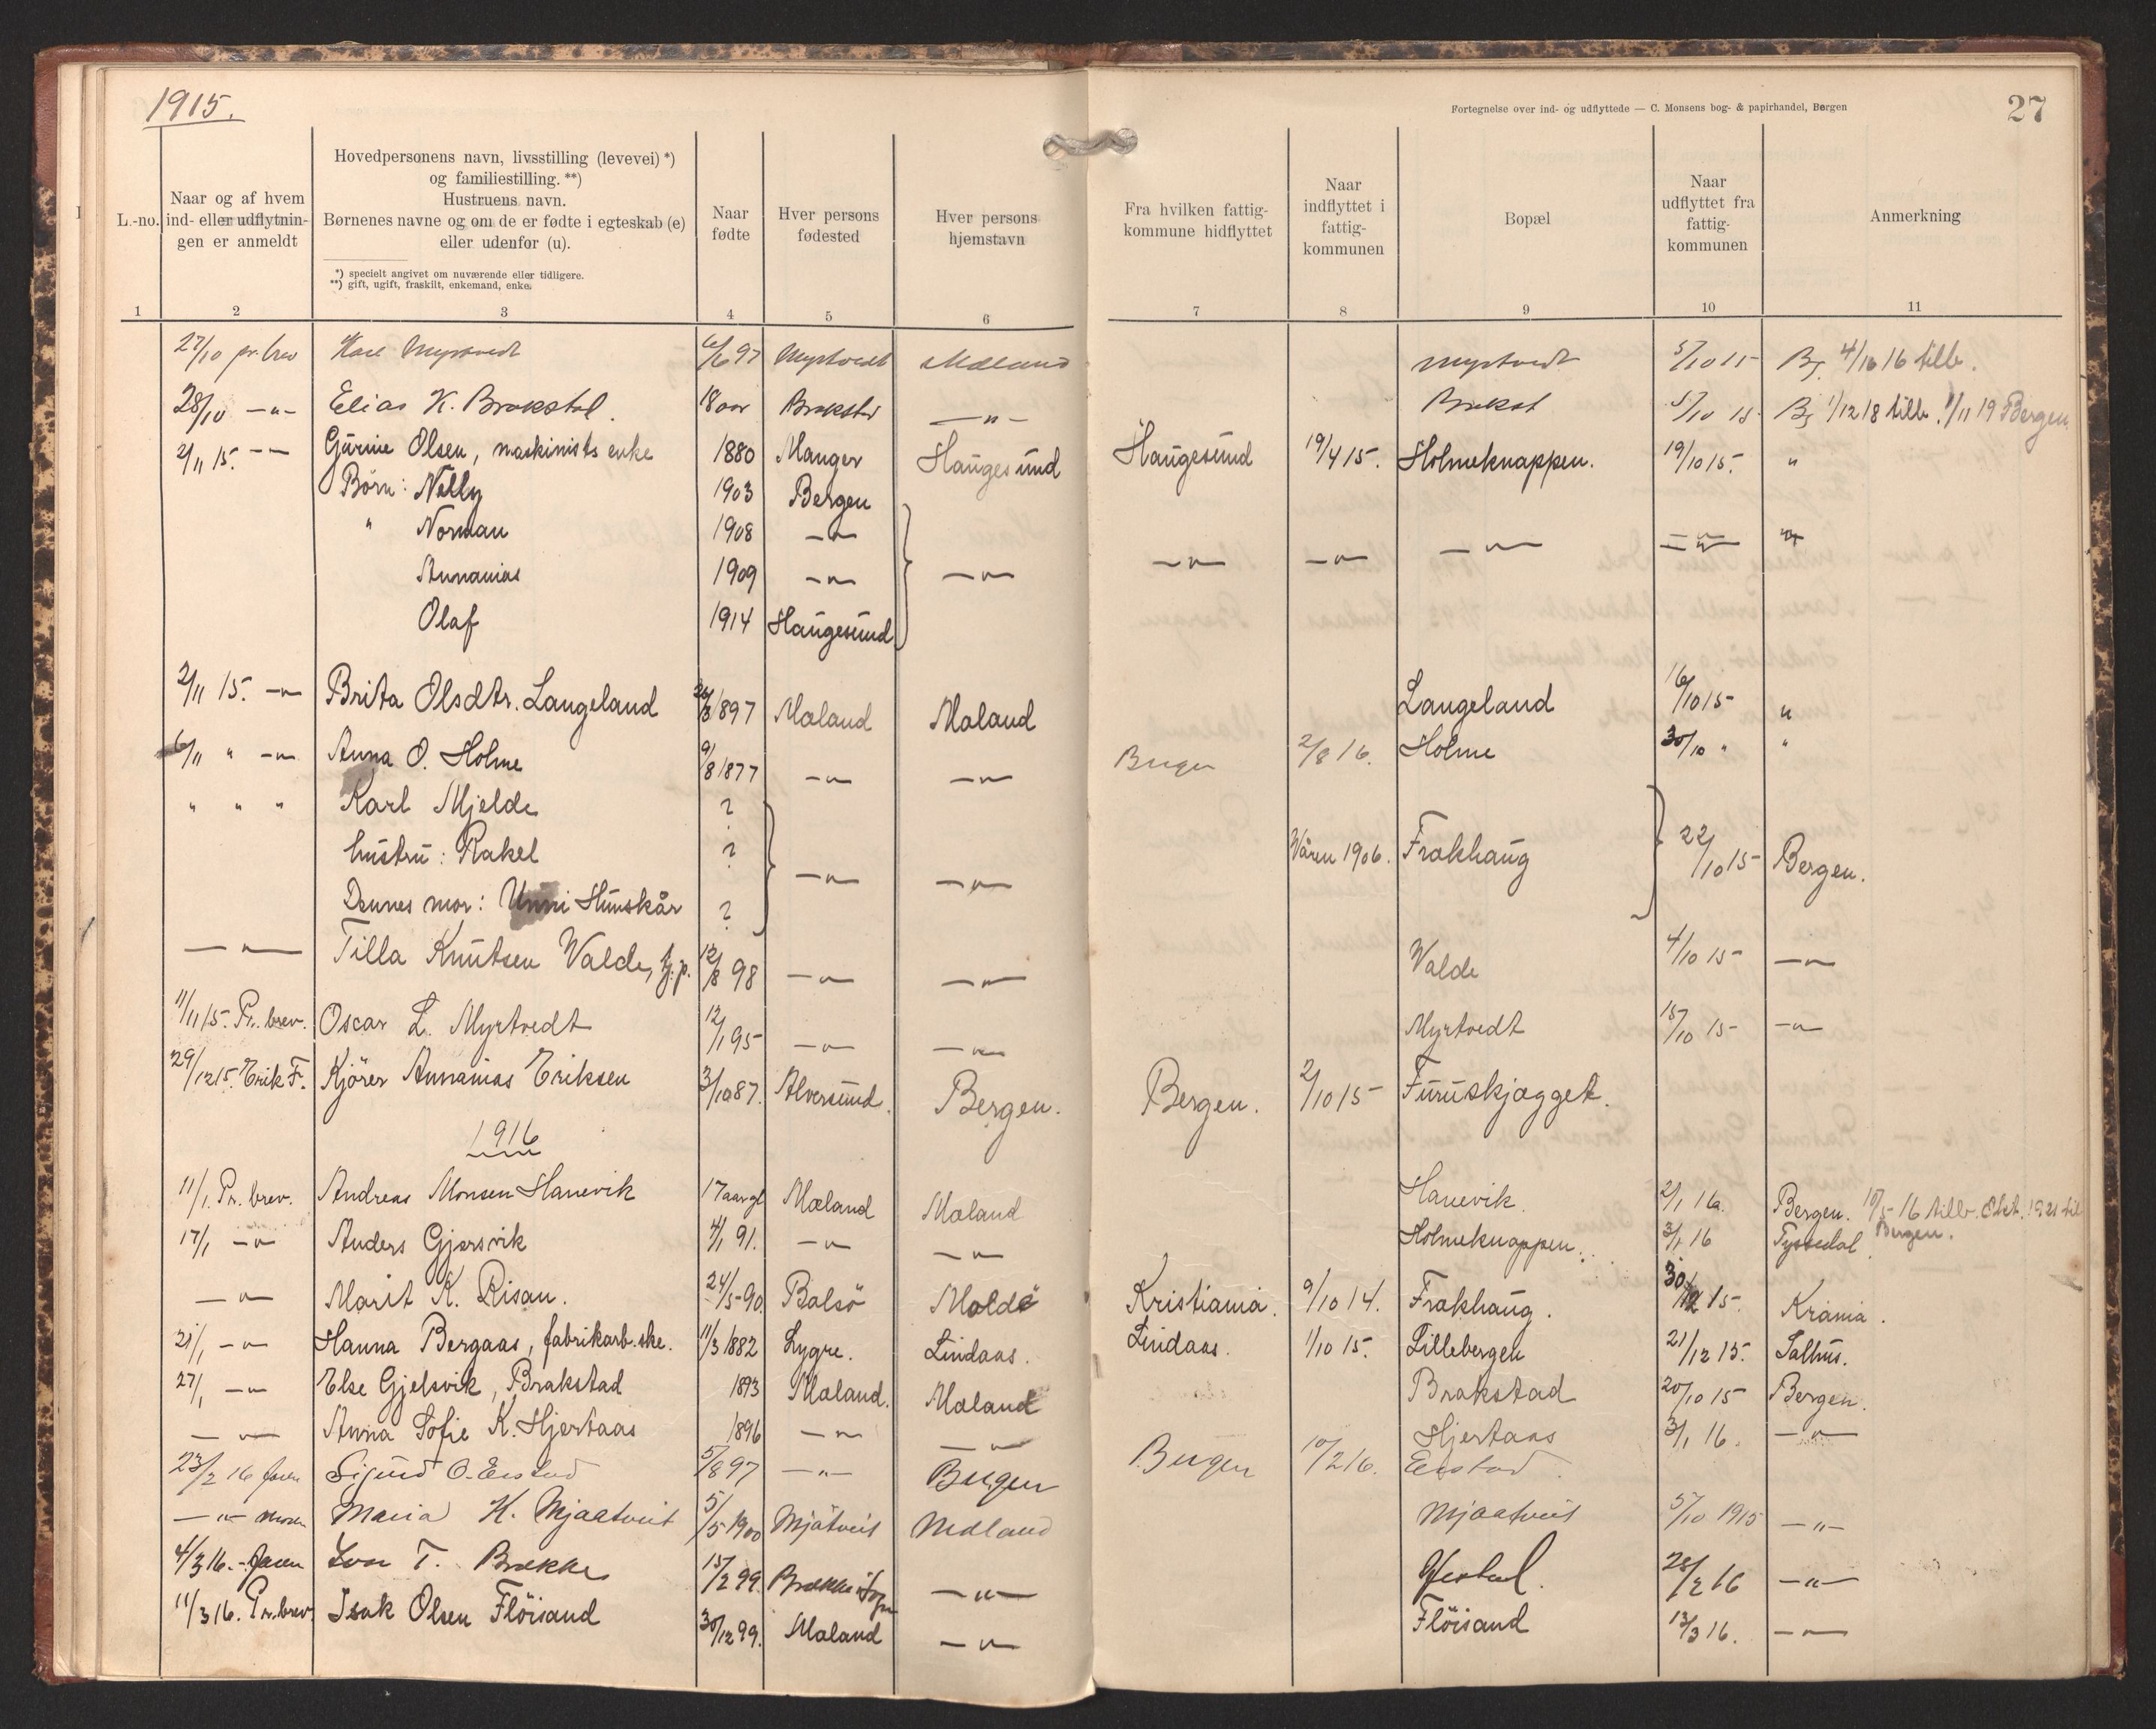 1915.
Fortegnelse over ind- og udflyttede — C. Monsens bog- & papirhandel, Bergen
27
L.-no.
Naar og af hvem
ind- eller udflytnin-
gen er anmeldt
Hovedpersonens navn, livsstilling (levevei) *)
og familiestilling. **)
Hustruens navn.
Børnenes navne og om de er fødte i egteskab (e)
eller udenfor (u).
*) specielt angivet om nuværende eller tidligere.
**) gift, ugift, fraskilt, enkemand, enke.
Naar
fødte
Hver persons
fødested
Hver persons
hjemstavn
Fra hvilken fattig-
kommune hidflyttet
Naar
indflyttet i
fattig-
kommunen
Bopæl
Naar
udflyttet fra
fattig-
kommunen
Anmerkning
1 2 3 4 5 6 7 8 9 10 11
27/10 pr. brev Karl Myrtvedt 6/6 97 Myrtvedt Mæland Myrtvedt 5/10 15 4/10 16 tilb.
28/10 —"— Elias K. Brakstad 18 aar Brakstad —"— Brakst 5/10 15 1/12 18 tilb. 1/11 19 Bergen
2/11 15. —"— Gurine Olsen, maskinists enke 1880 Manger Haugesund Haugesund 19/4 15. Holmeknappen. 19/10 15. "
Børn: Nelly 1903 Bergen
" Norman 1908 —"— —"— —"— —"— —"— "
Annanias 1909 —"— —"—
Olaf 1914 Haugesund
2/11 15. —"— Brita Olsdtr. Langeland 1897 Mæland Mæland Langeland 16/10 15 "
6/11 " —"— Anna O. Holme 9/8 1877 —"— —"— Bergen 2/8 16. Holme 30/10 " "
" " " Karl Mjelde ?
hustru: Rakel ? —"— —"— Våren 1906. Frækhaug 22/10 15 Bergen.
Dennes mor: Unni Hunskår ?
—"— Tilla Knutsen Valde, tj.p. 12/8 98 —"— —"— Valde 4/10 15 —"—
11/11 15. Pr. brev. Oscar L. Myrtvedt 12/1 95 —"— —"— Myrtvedt 15/10 15 —"—
29/12 15. Erik F. Kjører Annanias Eriksen 3/10 87. Alversund. Bergen. Bergen. 2/10 15 Furuskjægget.
1916
11/1. Pr. brev. Andreas Monsen Hanevik 17 aar gl Mæland Mæland Hanevik. 2/1 16. Bergen. 10/5 16 tilb. Okt. 1921 til Bergen.
17/1 —"— Anders Gjersvik 4/1 91. —"— —"— Holmeknappen. 3/1 16 Tyssedal.
—"— Marit K. Risan. 24/5 90. Bolsö Molde Kristiania. 9/10 14. Frækhaug. 30/12 15. Krania.
21/1 —"— Hanna Bergaas, fabrikarb.ske. 11/3 1882 Lygre. Lindaas. Lindaas. 1/10 15. Lillebergen 21/12 15. Salhus.
27/1 —"— Else Gjelsvik, Brakstad 1893 Mæland. Mæland Brakstad 20/10 15 Bergen.
—"— Anna Sofie K. Hjertaas 1896 —"— —"— Hjertaas 3/1 16. —"—
23/2 16 faren Sigurd O. Eistad 5/8 97 —"— Bergen Bergen 10/2 16. Eistad.
—"— moren Maria K. Mjaatveit 5/5 1900 Mjåtveit Mæland Mjaatveit 5/10 1915 —"—
4/3 16. faren T. Brække 15/2 99. Brække i Sogn —"— 28/2 16 —"—
11/3 16. Pr. brev Isak Olsen Flöisand 30/12 99. Mæland —"— Flöisand 13/3 16. —"—